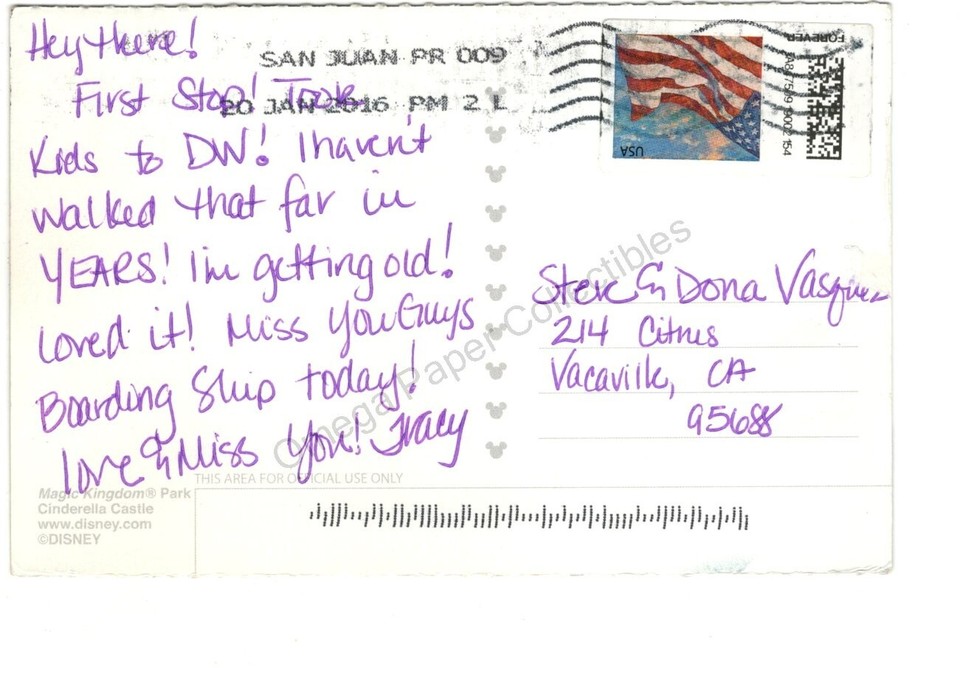 Hey there!
SAN JUAN PR 009
First Stop! Took
20 JAN 2016 PM 2 L
Kids to DW! I haven't
walked that far in
YEARS! I'm getting old!
Loved it! Miss You Guys
Boarding Ship today!
Love & Miss You! Tracy
Magic Kingdom® Park
Cinderella Castle
www.disney.com
©DISNEY
THIS AREA FOR OFFICIAL USE ONLY
USA
FOREVER
Steve & Dona Vasquez
214 Citrus
Vacaville, CA
95688
Omega Paper Collectibles